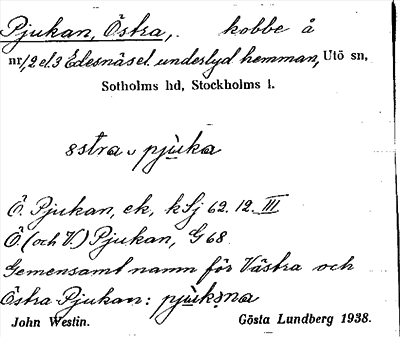 Pjukan, Östra, . kobbe å
nr 1, 2 el. 3 Edesnäs el. underlyd hemman, Utö sn,
Sotholms hd, Stockholms l.
östra pjùka
Ö. Pjukan, ek, kSj 62. 12. III
Ö (och V.) Pjukan, G 68
Gemensamt namn för Västra och
Östra Pjukan: pjùkəna
John Westin. Gösta Lundberg 1938.